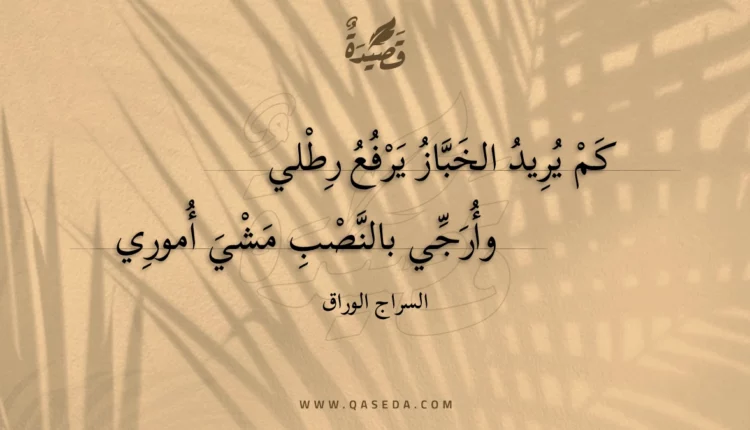 قَصِيْدَةٌ
كَمْ يُرِيدُ الخَبَّازُ يَرْفُعُ رِطْلي
وأُرَجِّي بالنَّصْبِ مَشْيَ أُمورِي
السراج الوراق
WWW.QASEDA.COM